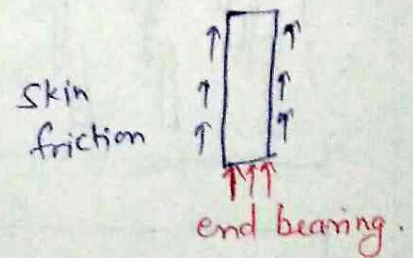 Skin
friction
end bearing.